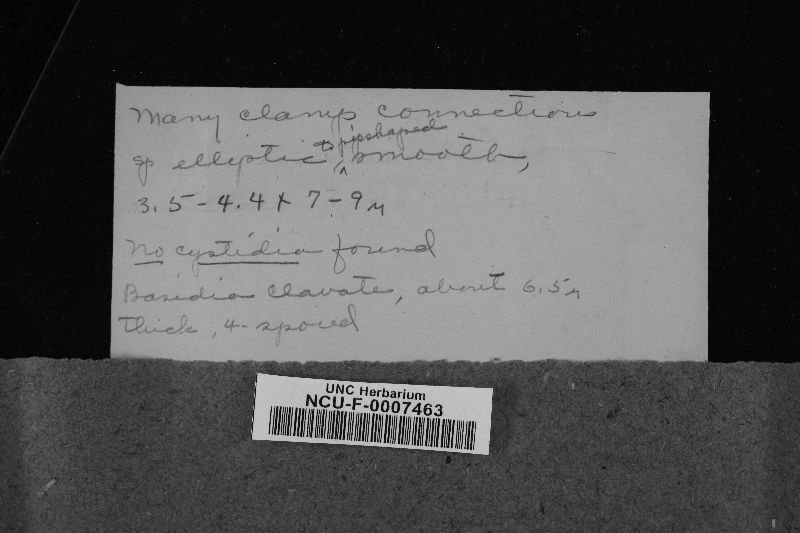 Many clamp connections
sp elliptic to pipshaped, smooth,
3.5-4.4 x 7-9µ
No cystidia found
Basidia clavate, about 6.5µ
thick, 4-spored
UNC Herbarium
NCU-F-0007463